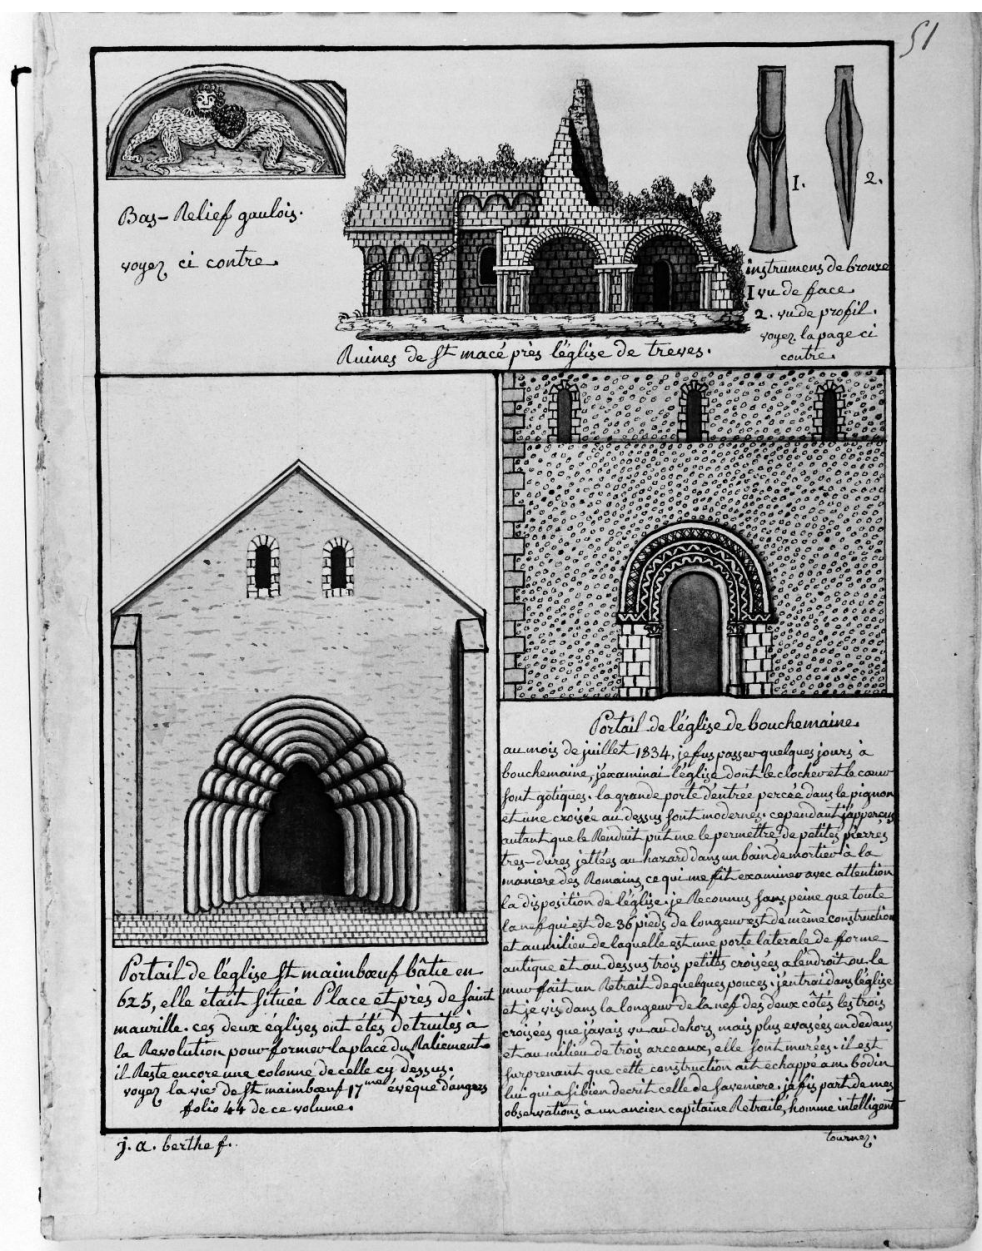 51
Bas-Relief gaulois.
voyez ci contre
1.
2.
instrumens de bronze
1 vu de face
2. vu de profil.
voyez la page ci
contre.
Ruines de St macé près l'église de treves.
Portail de l'église St maimbœuf bâtie en
625, elle était située Place et près de saint
maurille. ces deux églises ont étés detruites à
la Revolution pour former la place du Raliement
il Reste encore une colonne de celle cy dessus.
voyez la vie de St maimbœuf 17me evêque d'angers
folio 44 de ce volume.
Portail de l'église de bouchemaine.
au mois de juillet 1834, je fus passer quelques jours à
bouchemaine, j'examinai l'église dont le clocher et le cœur
sont gotiques. la grande porte d'entrée percée dans le pignon
et une croisée au dessus sont modernes. cependant j'apperçus
autant que le Renduit put me le permettre, de petites pierres
tres-dures jettées au hazard dans un bain de mortier à la
maniere des Romains, ce qui me fit examiner avec attention
la disposition de l'église. je Reconnus sans peine que toute
la nef qui est de 36 pieds de longeur est de même construction
et au milieu de laquelle est une porte laterale de forme
antique et au dessus trois petites croisées a l'endroit ou le
mur fait un Retrait de quelques pouces. j'entrai dans l'église
et je vis dans la longeur de la nef des deux côtés les trois
croisées que j'avais vu au dehors, mais plus evasées en dedans
et au milieu de trois arceaux, elle sont murées. il est
surprenant que cette construction ait echappé a mr bodin
lui qui a si bien decrit celle de saveniere. je fis part de mes
observations à un ancien capitaine Retraité, homme intelligent
j. a. berthe f.
tournez.